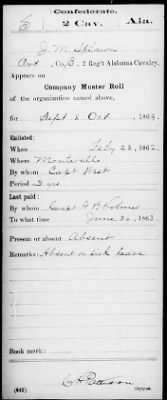 Confederate.
S 2 Cav. Ala.
J. M.
Pvt, Co. B, 2 Reg't Alabama Cavalry.
Appears on
Company Muster Roll
of the organization named above,
for Sept & Oct, 1863.
Enlisted:
When Feby 28, 1862.
Where Montevallo
By whom Capt West
Period 3 yrs
Last paid:
By whom Capt G B Holmes
To what time June 30, 1863.
Present or absent Absent
Remarks: Absent on sick leave
Book mark:
(642) Copyist.